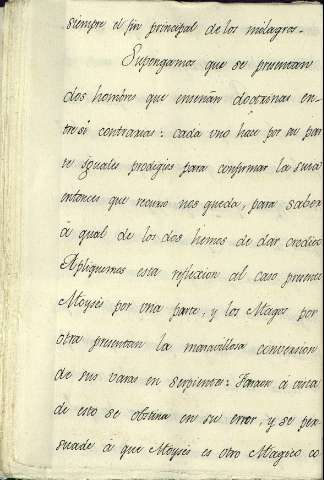 siempre el fin principal de los milagros.
Supongamos que se presentan
dos hombres que enseñan doctrinas en-
tre sí contrarias: cada uno hace por su par
te iguales prodigios para confirmar la suia
entonces que recurso nos queda, para saber
á qual de los dos hemos de dar credito
Apliquemos esta reflexion al caso presente
Moysés por una parte, y los Magos por
otra presentan la maravillosa conversion
de sus varas en serpientes: Faraon á vista
de esto se obstina en su error, y se per
suade á que Moysés es otro Magico co